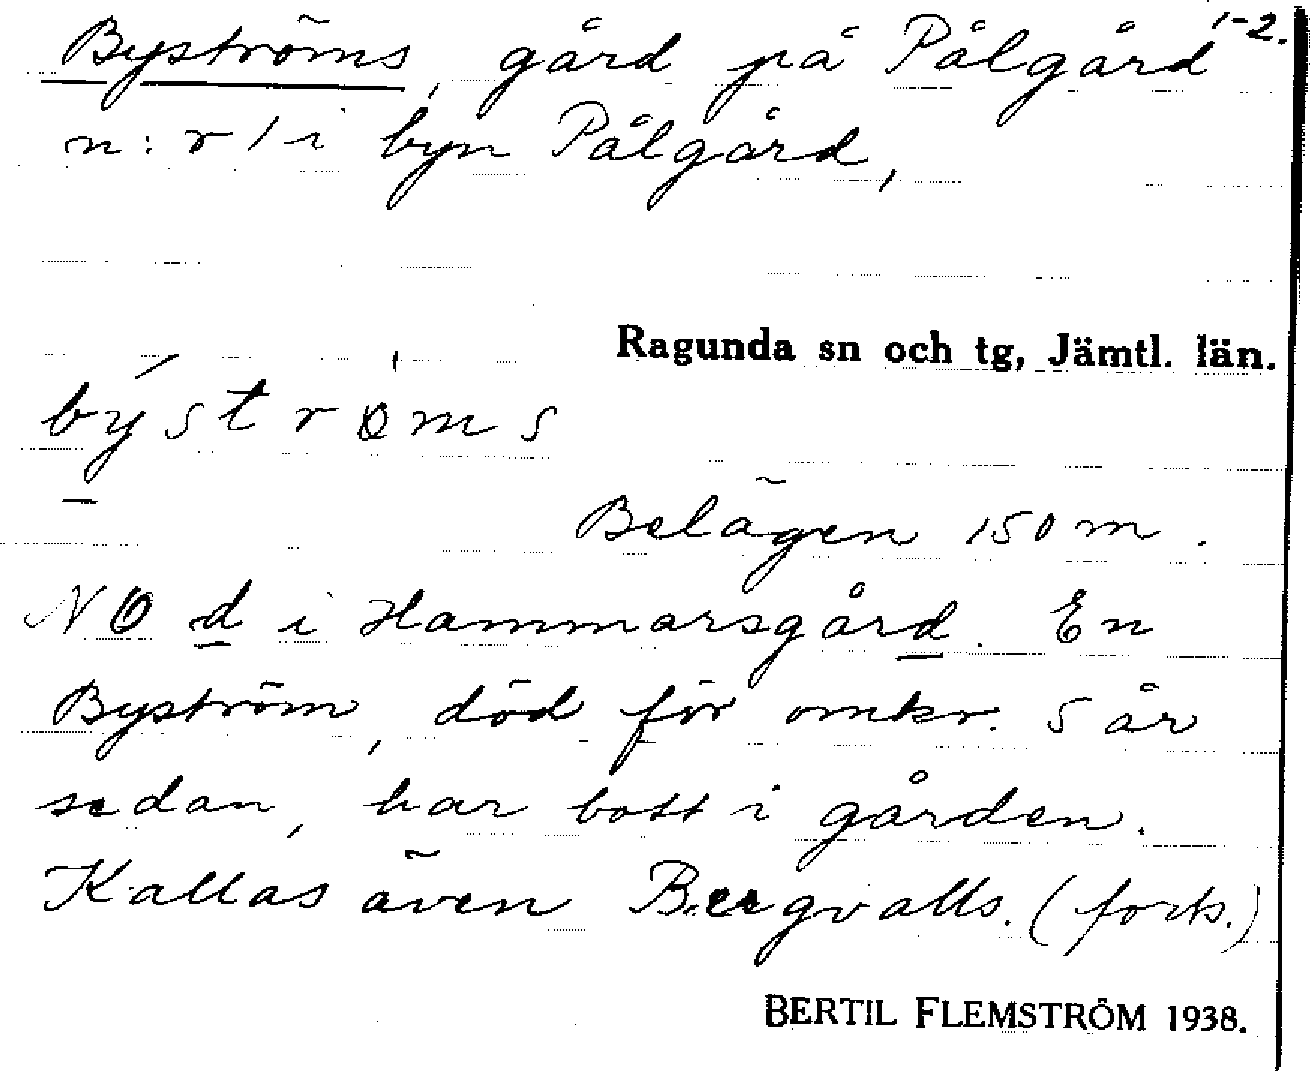 1-2.
Byströms, gård på Pålgård
n:r 1 i byn Pålgård,
Ragunda sn och tg, Jämtl. län.
býstrøms
Belägen 150 m.
NO d i Hammarsgård. En
Byström, död för omkr. 5 år
sedan, har bott i gården.
Kallas även Bergvalls. (forts.)
BERTIL FLEMSTRÖM 1938.